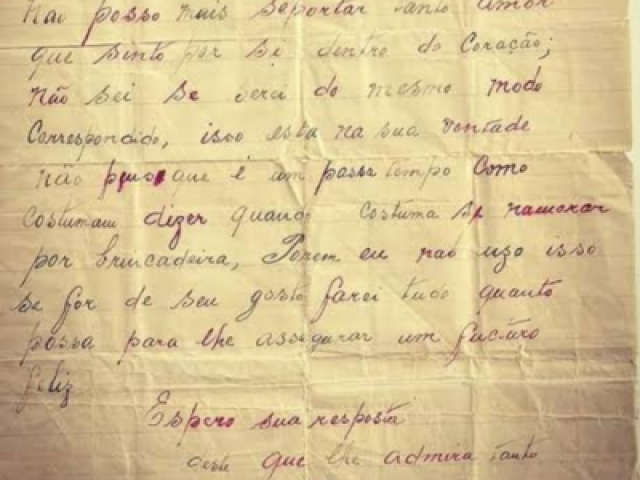 Não posso mais soportar tanto amor
que sinto por si dentro do Coração;
não sei se serei do mesmo modo
Correspondido, isso esta na sua vontade
não pense que é um possa tempo Como
costumam dizer quando costuma se namorar
por brincadeira, Porem eu não uzo isso
se for de seu gosto farei tudo quanto
possa para lhe assegurar um futuro
feliz
Espero sua resposta
deste que lhe admira tanto